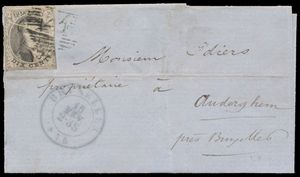 DIX CENTS
Monsieur Idiers
propriétaire à
Auderghem
près Bruxelles